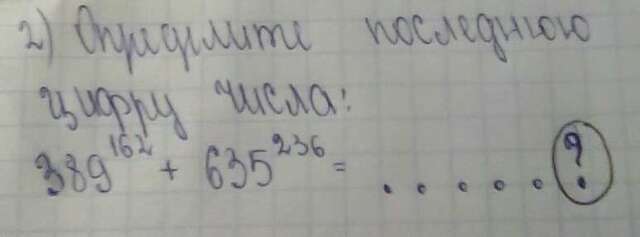 2) Определите последнюю
цифру числа:
389¹⁶² + 635²³⁶ = . . . . . ?